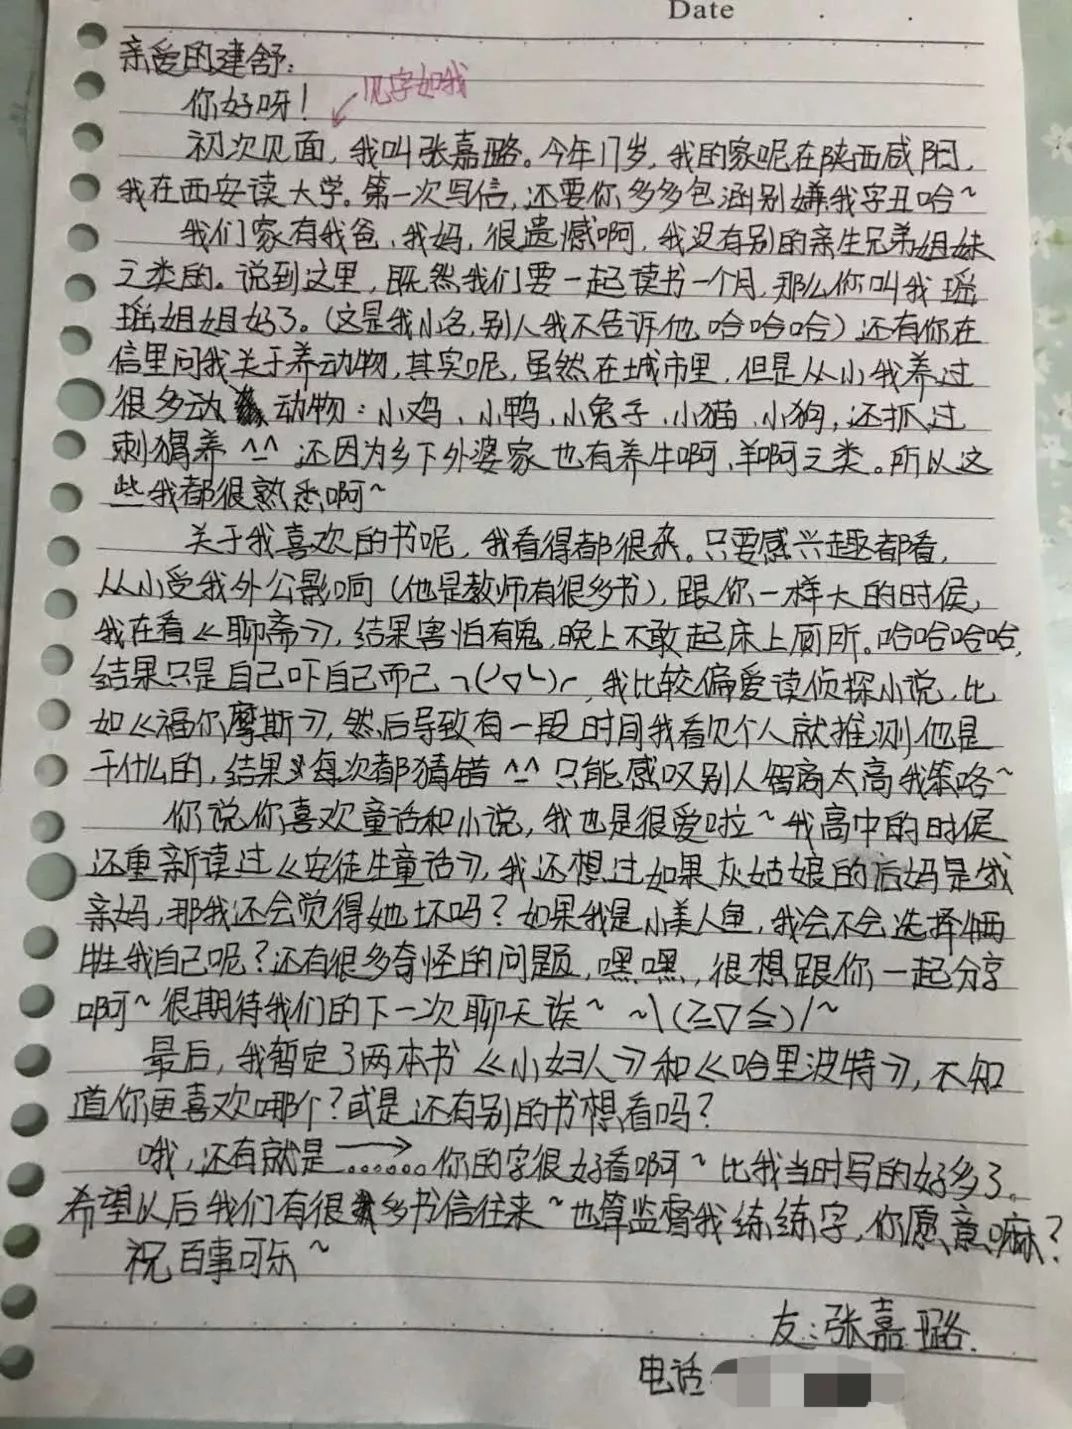 Date
亲爱的建舒:
你好呀! 见字如我
初次见面,我叫张嘉璐。今年17岁,我的家呢在陕西咸阳,
我在西安读大学。第一次写信,还要你多多包涵别嫌我字丑哈~
我们家有我爸、我妈,很遗憾啊,我没有别的亲生兄弟姐妹
之类的。说到这里,既然我们要一起读书一个月,那么你叫我瑶
瑶姐姐好了。(这是我小名,别人我不告诉他 哈哈哈)还有你在
信里问我关于养动物,其实呢,虽然在城市里,但是从小我养过
很多动 动物:小鸡、小鸭、小兔子、小猫、小狗,还抓过
刺猬养 ^_^ 还因为乡下外婆家也有养牛啊,羊啊之类。所以这
些我都很熟悉啊~
关于我喜欢的书呢,我看得都很杂。只要感兴趣都看,
从小受我外公影响(他是教师有很多书),跟你一样大的时候,
我在看《聊斋》,结果害怕有鬼,晚上不敢起床上厕所。哈哈哈哈,
结果只是自己吓自己而已 ╮(╯▽╰)╭,我比较偏爱读侦探小说,比
如《福尔摩斯》,然后导致有一段时间我看见个人就推测他是
干什么的,结果每次都猜错 ^_^ 只能感叹别人智商太高我笨咯~
你说你喜欢童话和小说,我也是很爱啦~我高中的时候
还重新读过《安徒生童话》,我还想过如果灰姑娘的后妈是我
亲妈,那我还会觉得她坏吗?如果我是小美人鱼,我会不会选择牺
牲我自己呢?还有很多奇怪的问题,嘿嘿,很想跟你一起分享
啊~很期待我们的下一次聊天诶~ ~\(≧▽≦)/~
最后,我暂定了两本书《小妇人》和《哈里波特》,不知
道你更喜欢哪个?或是还有别的书想看吗?
哦,还有就是→......你的字很好看啊~比我当时写的好多了。
希望以后我们有很多书信往来~也算监督我练练字,你愿意嘛?
祝百事可乐~
友:张嘉璐.
电话